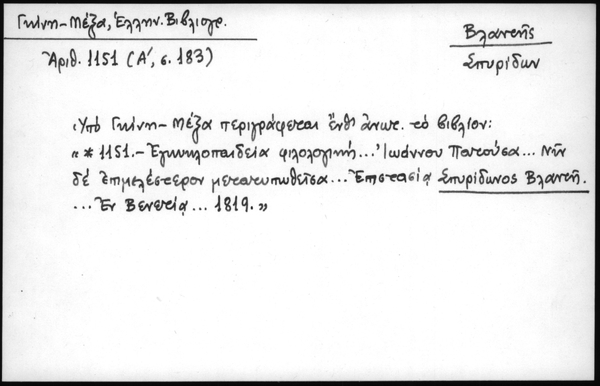 Γκίνη-Μέξα, Ἑλλην. Βιβλιογρ.
Ἀριθ. 1151 (Α΄, σ. 183)
Βλαντῆς
Σπυρίδων
Ὑπὸ Γκίνη-Μέξα περιγράφεται ἔνθ' ἀνωτ. τὸ βιβλίον:
«* 1151.- Ἐγκυκλοπαιδεία φιλολογική... Ἰωάννου Πατούσα... Νῦν
δὲ ἐπιμελέστερον μετατυπωθεῖσα... Ἐπιστασίᾳ Σπυρίδωνος Βλαντῆ.
... Ἐν Βενετίᾳ... 1819.»